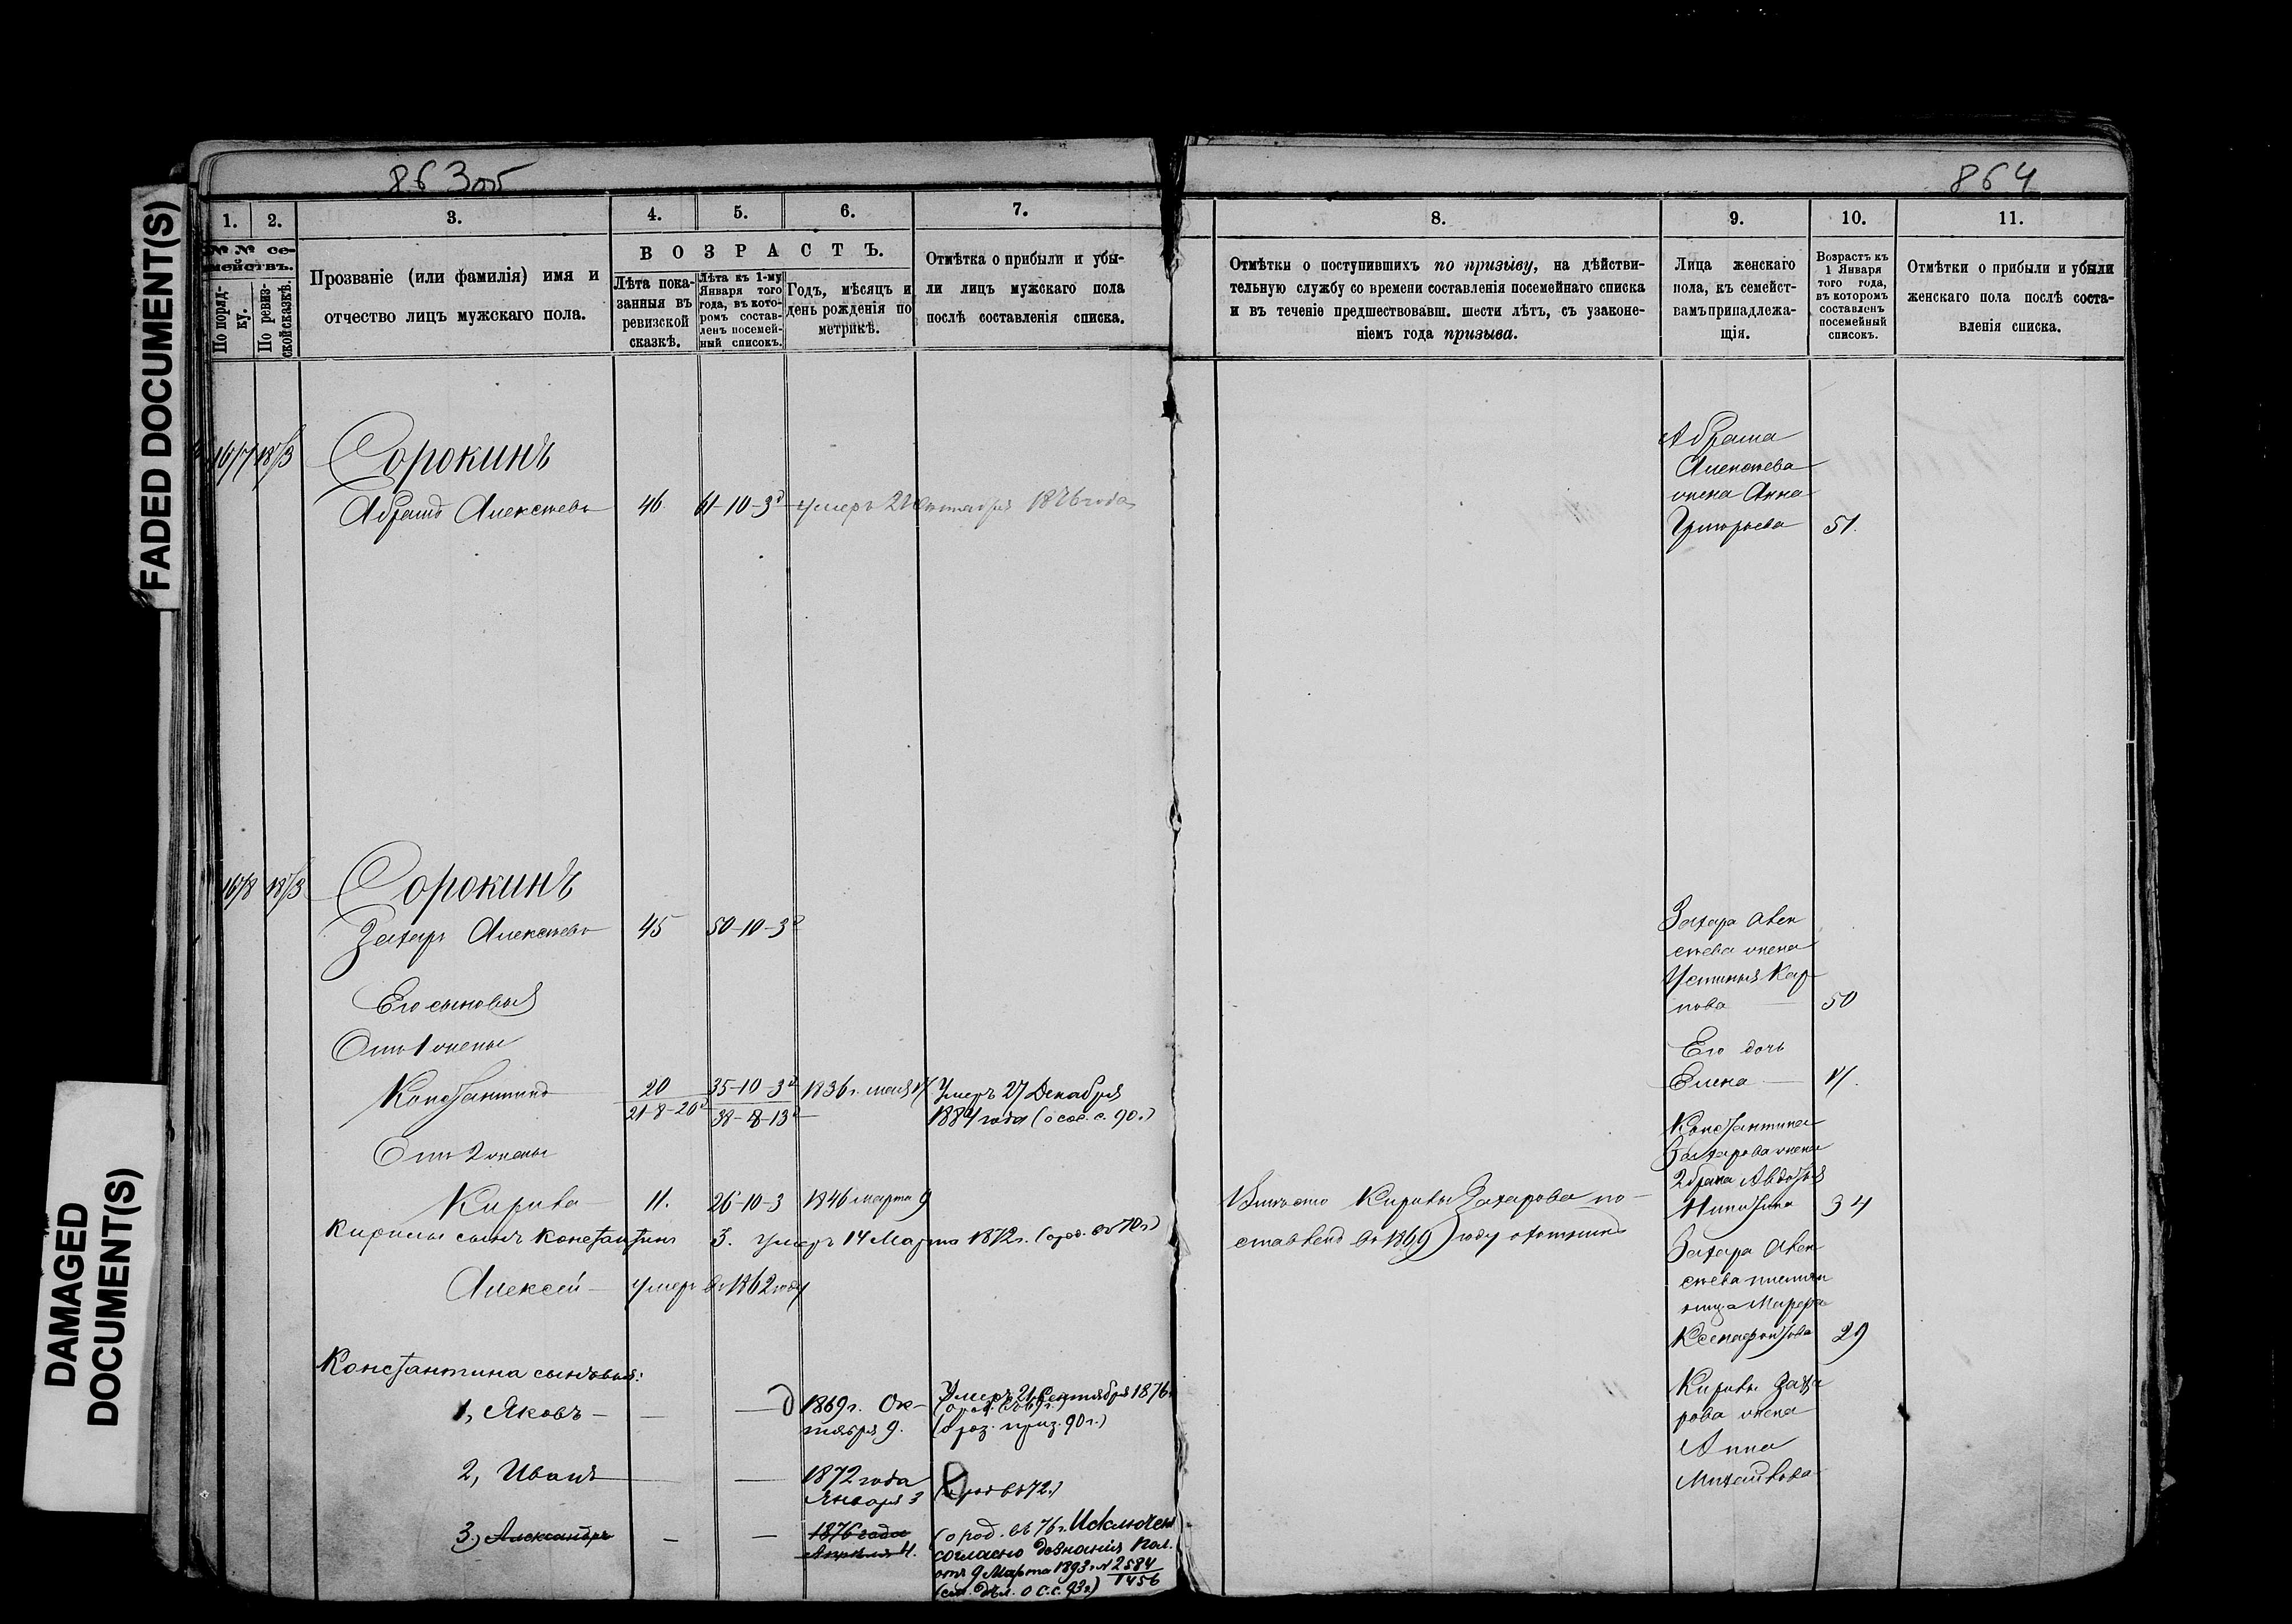 FADED DOCUMENT(S)
DAMAGED
DOCUMENT(S)
863об
1. 2. 3. 4. 5. 6. 7.
№ № се-
мействъ.
По поряд-
ку.
По ревиз-
ской сказкѣ.
Прозваніе (или фамилія) имя и
отчество лицъ мужскаго пола.
В О З Р А С Т Ъ.
Лѣта пока-
занныя въ
ревизской
сказкѣ.
Лѣта къ 1-му
Января того
года, въ кото-
ромъ состав-
ленъ посемей-
ный списокъ.
Годъ, мѣсяцъ и
день рожденія по
метрикѣ.
Отмѣтка о прибыли и убы-
ли лицъ мужскаго пола
послѣ составленія списка.
Сорокинъ
Абрамъ Алексѣевъ 46 61-10-3 умеръ 1876 года
Сорокинъ
Захаръ Алексѣевъ 45 50-10-3
Его сыновья
Отъ 1 жены
Константинъ 20 35-10-3 1836 г. мая Умеръ 27 Декабря
21-8-20 38-8-13 1884 года
Отъ 2 жены
Кирила 11. 26-10-3 1846 марта 9
Кирилы сынъ Константинъ 3. умеръ 14 Марта 1872 г.
Алексѣй умеръ въ 1862 году
Константина сыновья:
1, Яковъ 1869 г. Ок- Умеръ 21 Сентября 1876
тября 9. (о роз. приз. 90 г.)
2, Иванъ 1872 года
Января 3 (о род въ 72.)
3, Александръ 1876 года (о род. въ 76 г. Исключенъ
Апрѣля 4. согласно дознанія Пол.
отъ 9 Марта 1893 г. № 2584
1456
(см. дѣл. о с.с. 93 г.)
864
8. 9. 10. 11.
Отмѣтки о поступившихъ по призыву, на дѣйстви-
тельную службу со времени составленія посемейнаго списка
и въ теченіе предшествовавш. шести лѣтъ, съ узаконе-
ніемъ года призыва.
Лица женскаго
пола, къ семейст-
вамъ принадлежа-
щія.
Возрастъ къ
1 Января
того года,
въ которомъ
составленъ
посемейный
списокъ.
Отмѣтки о прибыли и убыли
женскаго пола послѣ соста-
вленія списка.
Абрама
Алексѣева
жена Анна
Григорьева 51.
Захара Алек
сѣева жена
Устинья Кар
пова 50
Его дочь
Елена
Константина
Захарова жена
2 брака Авдотья
Никитина 34
Вмѣсто Кирилы Захарова по-
ставленъ въ 1869 году охотникъ
Захара Алек
сѣева племян
ница Марфа
Ксенофонтова 29
Кирилы Заха
рова жена
Анна
Михайлова